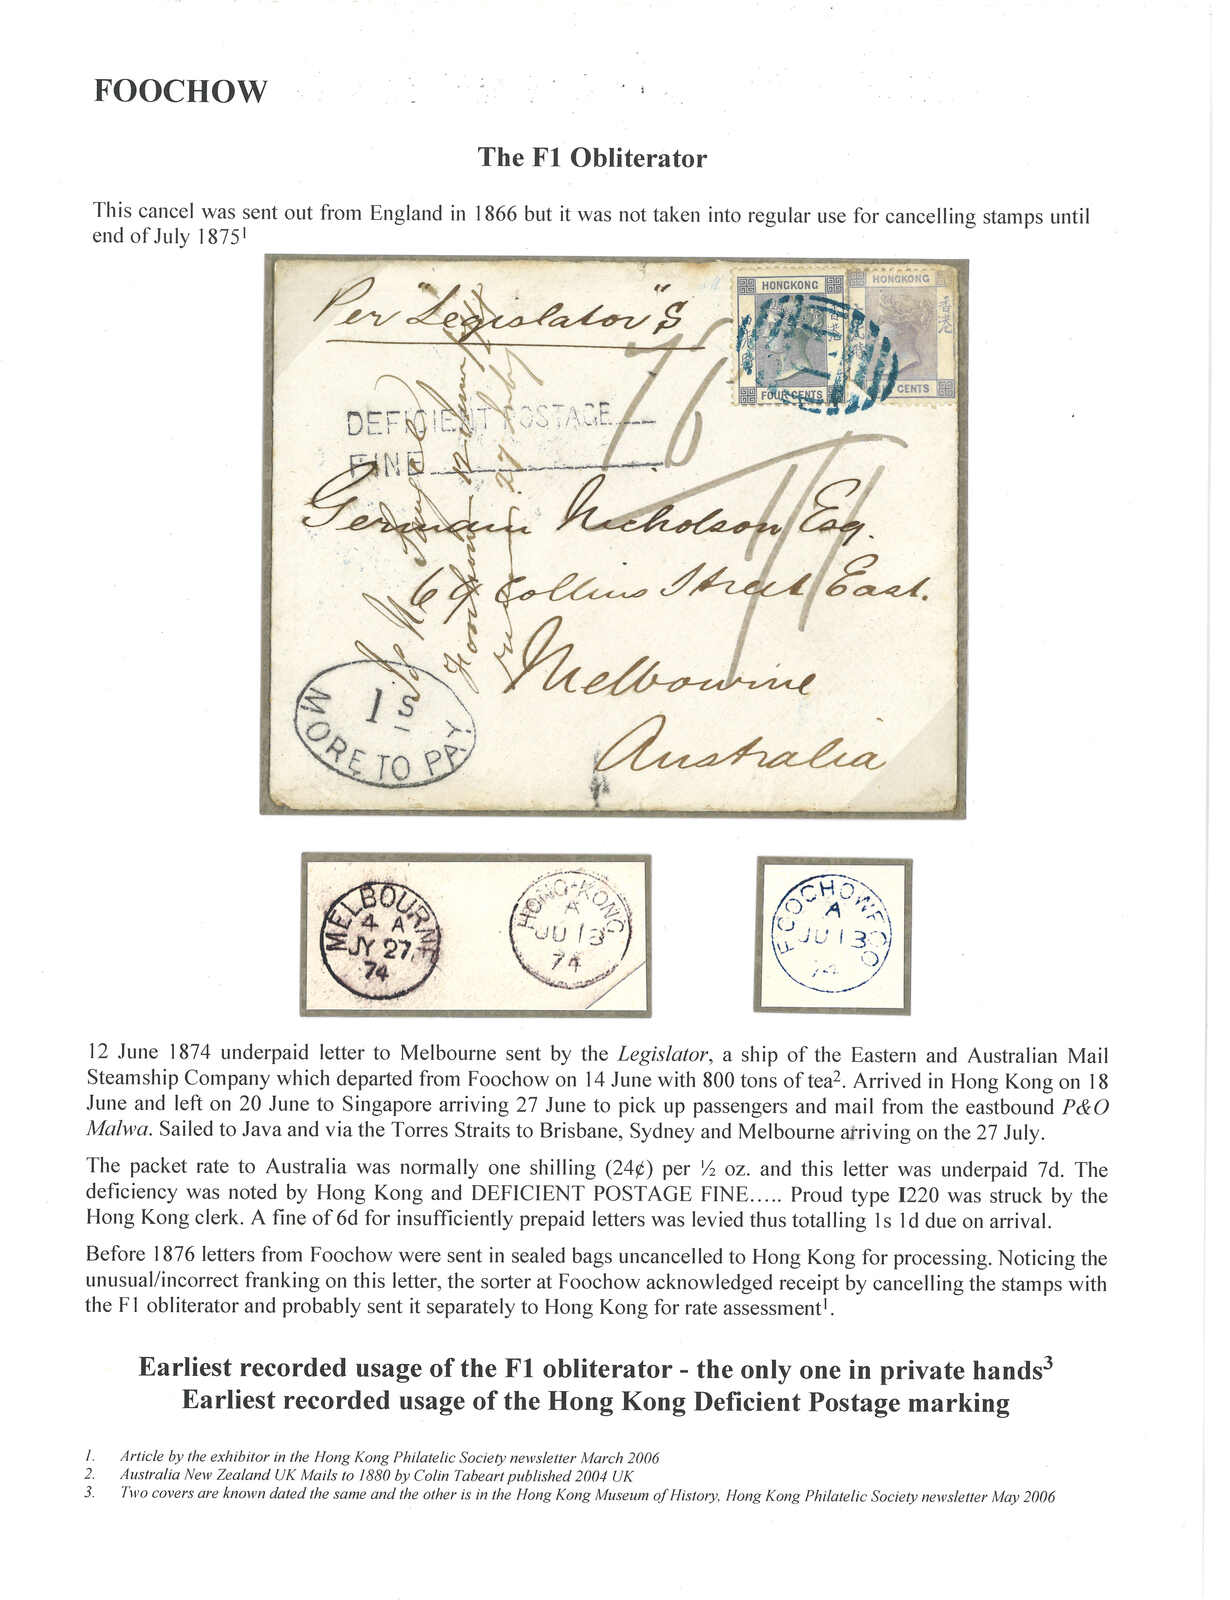 FOOCHOW
The F1 Obliterator
This cancel was sent out from England in 1866 but it was not taken into regular use for cancelling stamps until
end of July 1875¹
Per "Legislator" S
HONGKONG
HONGKONG
香港
香港
FOUR CENTS
CENTS
DEFICIENT POSTAGE
FINE
Germain Nicholson Esq.
69 Collins Street East.
Melbourne
Australia
1 S
MORE TO PAY
MELBOURNE
4 A
JY 27
74
HONG-KONG
A
JU 18
74
FOOCHOWFOO
A
JU 13
74
12 June 1874 underpaid letter to Melbourne sent by the Legislator, a ship of the Eastern and Australian Mail
Steamship Company which departed from Foochow on 14 June with 800 tons of tea². Arrived in Hong Kong on 18
June and left on 20 June to Singapore arriving 27 June to pick up passengers and mail from the eastbound P&O
Malwa. Sailed to Java and via the Torres Straits to Brisbane, Sydney and Melbourne arriving on the 27 July.
The packet rate to Australia was normally one shilling (24¢) per ½ oz. and this letter was underpaid 7d. The
deficiency was noted by Hong Kong and DEFICIENT POSTAGE FINE..... Proud type I220 was struck by the
Hong Kong clerk. A fine of 6d for insufficiently prepaid letters was levied thus totalling 1s 1d due on arrival.
Before 1876 letters from Foochow were sent in sealed bags uncancelled to Hong Kong for processing. Noticing the
unusual/incorrect franking on this letter, the sorter at Foochow acknowledged receipt by cancelling the stamps with
the F1 obliterator and probably sent it separately to Hong Kong for rate assessment¹.
Earliest recorded usage of the F1 obliterator - the only one in private hands³
Earliest recorded usage of the Hong Kong Deficient Postage marking
1. Article by the exhibitor in the Hong Kong Philatelic Society newsletter March 2006
2. Australia New Zealand UK Mails to 1880 by Colin Tabeart published 2004 UK
3. Two covers are known dated the same and the other is in the Hong Kong Museum of History, Hong Kong Philatelic Society newsletter May 2006